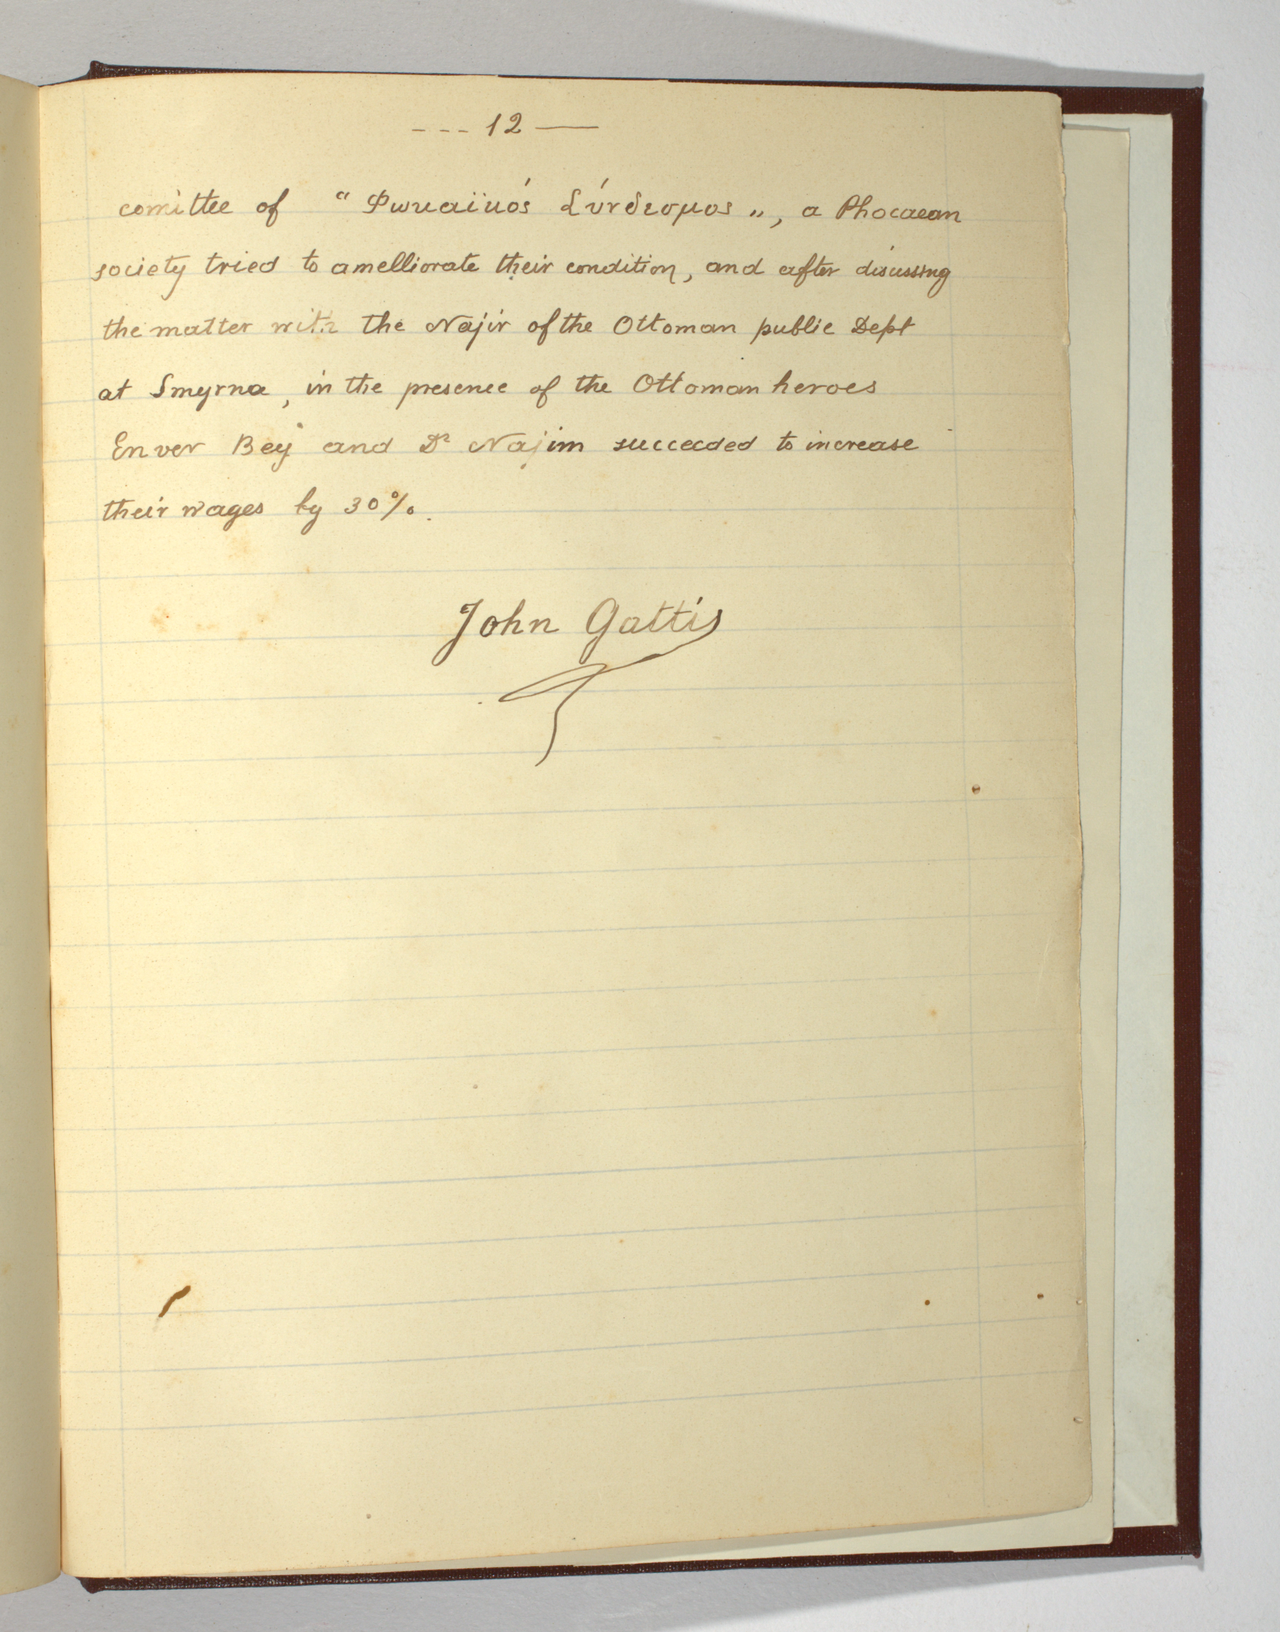 --- 12 —
comittee of “ Φωκαϊκός Σύνδεσμος „, a Phocaean
society tried to amelliorate their condition, and after disussing
the matter with the Najir of the Ottoman public Dept
at Smyrna, in the presence of the Ottoman heroes
Enver Bey and Dr Najim succeeded to increase
their wages by 30%.
John Gattis